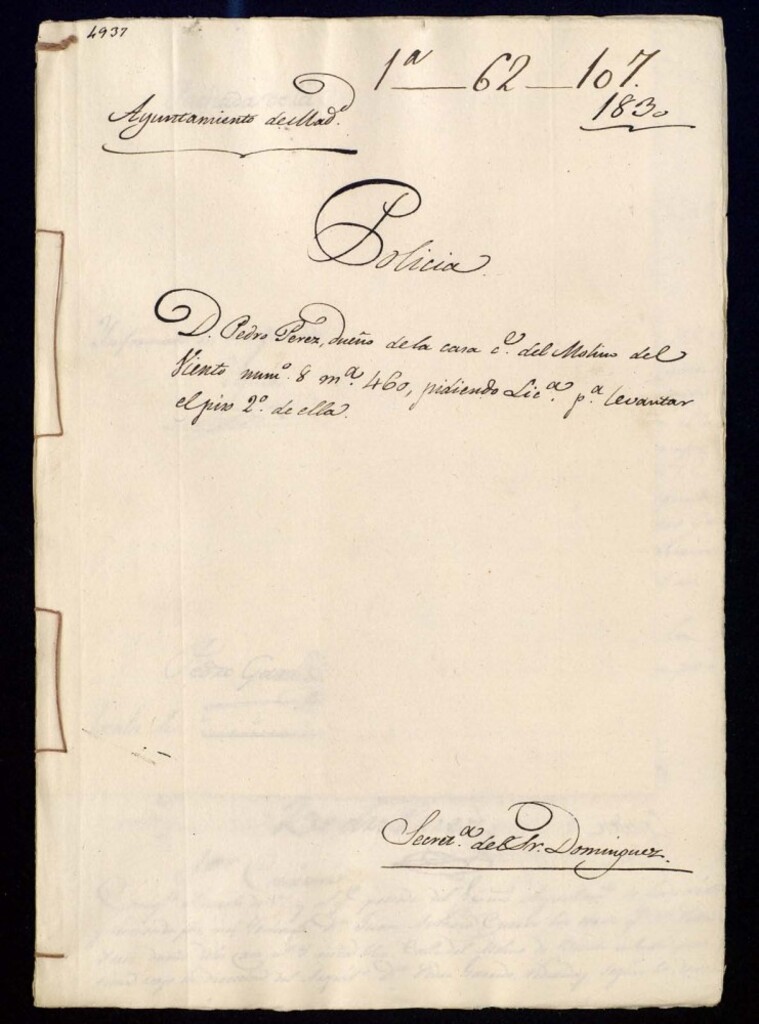 4937
1ª 62 107.
Ayuntamiento de Madᵈ.
1830
Policia
D. Pedro Perez, dueño de la casa cᵉ. del Molino del
Viento numº. 8 mª. 460, pidiendo Licª. pª. levantar
el piso 2º. de ella.
Secretª. del Sr. Dominguez.